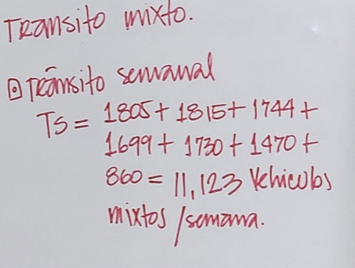 Transito mixto.
⊡ Tránsito semanal
TS = 1805 + 1815 + 1744 +
1699 + 1730 + 1470 +
860 = 11,123 Vehiculos
mixtos / semana.